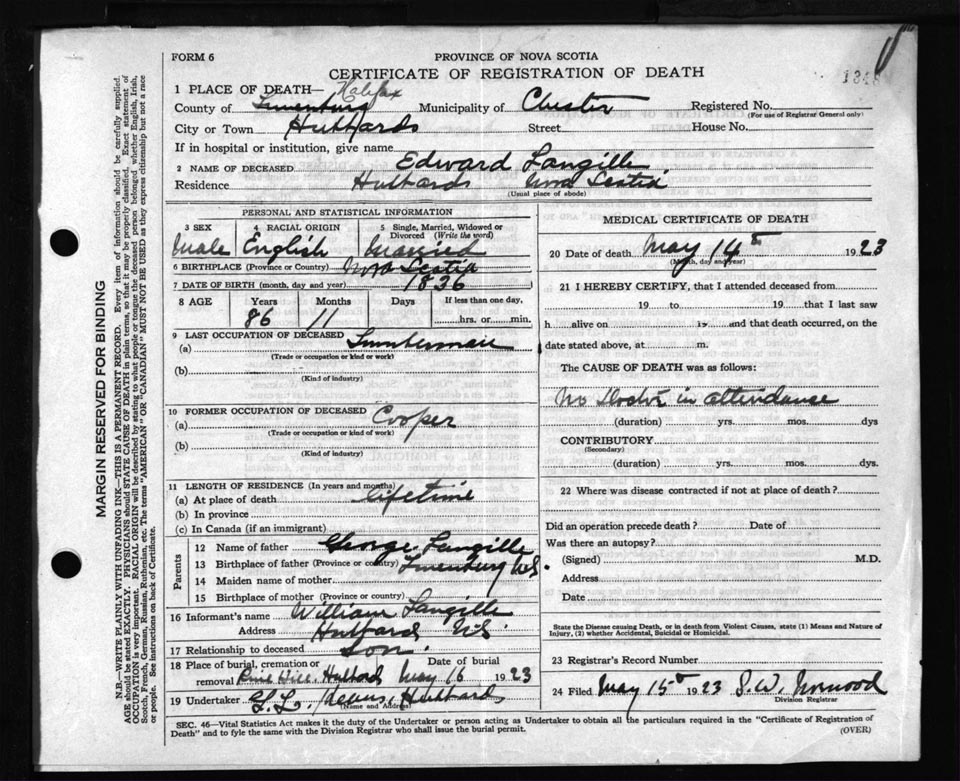 FORM 6
PROVINCE OF NOVA SCOTIA
CERTIFICATE OF REGISTRATION OF DEATH
1 PLACE OF DEATH— Halifax
County of Lunenburg Municipality of Chester Registered No.
(For use of Registrar General only)
City or Town Hubbards Street House No.
If in hospital or institution, give name
2 NAME OF DECEASED Edward Langille
Residence Hubbards Nova Scotia
(Usual place of abode)
PERSONAL AND STATISTICAL INFORMATION
3 SEX 4 RACIAL ORIGIN 5 Single, Married, Widowed or Divorced (Write the word)
Male English Married
6 BIRTHPLACE (Province or Country) Nova Scotia
7 DATE OF BIRTH (month, day and year) 1836
8 AGE Years Months Days If less than one day,
86 11 hrs. or min.
9 LAST OCCUPATION OF DECEASED
(a) Lumberman
(Trade or occupation or kind or work)
(b)
(Kind of industry)
10 FORMER OCCUPATION OF DECEASED
(a) Cooper
(Trade or occupation or kind of work)
(b)
(Kind of industry)
11 LENGTH OF RESIDENCE (In years and months)
(a) At place of death lifetime
(b) In province
(c) In Canada (if an immigrant)
Parents
12 Name of father George Langille
13 Birthplace of father (Province or country) Lunenburg N.S.
14 Maiden name of mother
15 Birthplace of mother (Province or Country)
16 Informant's name William Langille
Address Hubbards N.S.
17 Relationship to deceased Son
18 Place of burial, cremation or Date of burial
removal Pine Hill. Hubbards May 16 1923
19 Undertaker G. L. Hubbards
(Name and Address)
MEDICAL CERTIFICATE OF DEATH
20 Date of death May 14th 1923
(Month, day and year)
21 I HEREBY CERTIFY, that I attended deceased from
19 to 19 that I last saw
h alive on 19 and that death occurred, on the
date stated above, at m.
The CAUSE OF DEATH was as follows:
No Doctor in attendance
(duration) yrs. mos. dys
CONTRIBUTORY
(Secondary)
(duration) yrs. mos. dys.
22 Where was disease contracted if not at place of death?
Did an operation precede death? Date of
Was there an autopsy?
(Signed) M.D.
Address
Date
State the Disease causing Death, or in death from Violent Causes, state (1) Means and Nature of
Injury, (2) whether Accidental, Suicidal or Homicidal.
23 Registrar's Record Number
24 Filed May 15th 1923 S. W. Norwood
Division Registrar
SEC. 46—Vital Statistics Act makes it the duty of the Undertaker or person acting as Undertaker to obtain all the particulars required in the "Certificate of Registration of
Death" and to fyle the same with the Division Registrar who shall issue the burial permit.
(OVER)
MARGIN RESERVED FOR BINDING
N.B.—WRITE PLAINLY WITH UNFADING INK—THIS IS A PERMANENT RECORD. Every item of information should be carefully supplied.
AGE should be stated EXACTLY. PHYSICIANS should STATE CAUSE OF DEATH in plain terms, so that it may be properly classified. Exact statement of
OCCUPATION is very important. RACIAL ORIGIN will be described by stating to what people or tongue the deceased person belonged whether English, Irish,
Scotch, French, German, Russian, Ruthenian, etc. The terms "AMERICAN" OR "CANADIAN" MUST NOT BE USED as they express citizenship but not a race
or people. See instructions on back of Certificate.